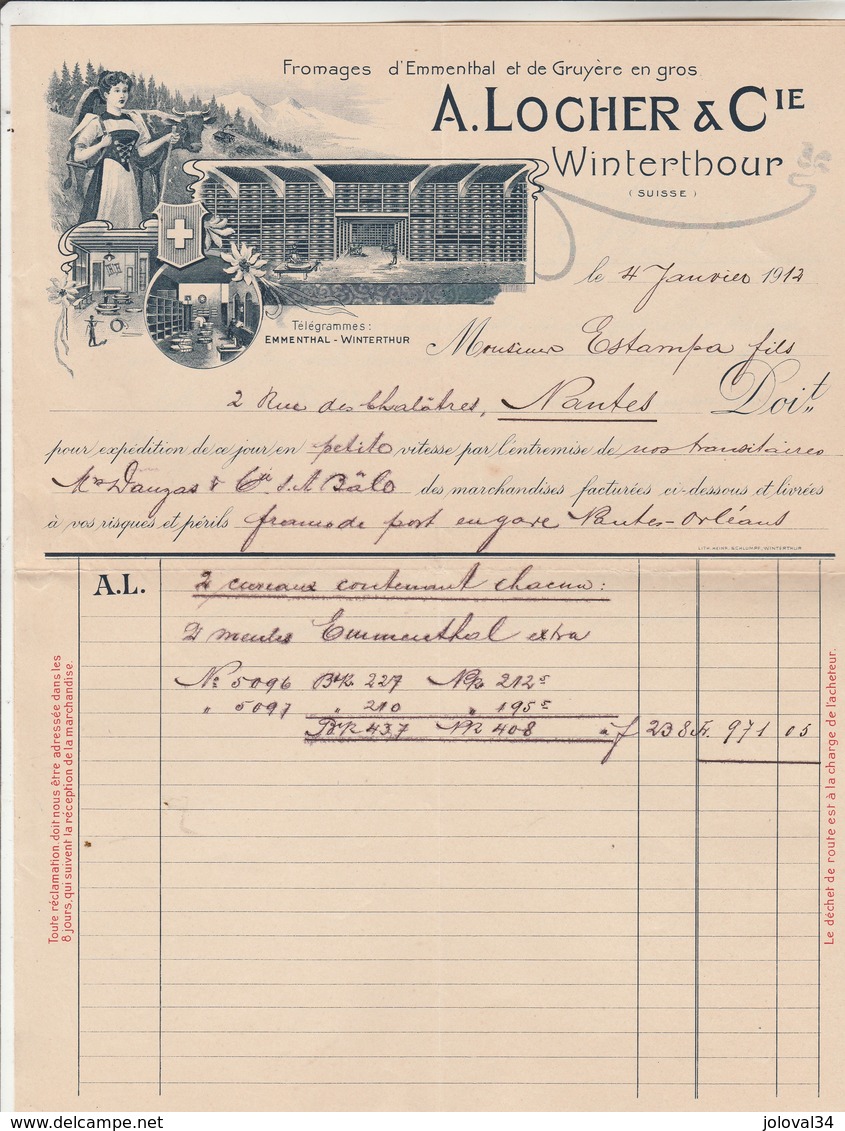 Fromages d'Emmenthal et de Gruyère en gros
A. LOCHER & CIE
Winterthour
(SUISSE)
le 4 Janvier 1912
Télégrammes:
EMMENTHAL - WINTERTHUR
Monsieur Estampa fils
2 Rue des Chalâtres, Nantes Doit
pour expédition de ce jour en petite vitesse par l'entremise de nos transitaires
Mrs Danzas & Cie S.A. Bâle des marchandises facturées ci-dessous et livrées
à vos risques et périls franco de port en gare Nantes-Orléans
LITH. HEINR. SCHLUMPF, WINTERTHUR
A.L.
2 cuveaux contenant chacun:
2 meules Emmenthal extra
No 5096 Btk. 227 Nk. 212 5
" 5097 " 210 " 195 5
Btk 437 Nk 408 à f 238 Fr. 971 05
Toute réclamation doit nous être adressée dans les
8 jours, qui suivent la réception de la marchandise.
Le déchet de route est à la charge de l'acheteur.
delcampe.net
joloval34